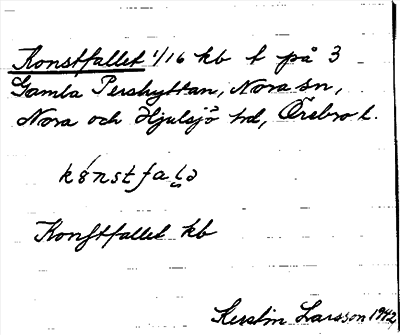 Konstfallet 1/16 kb t på 3
Gamla Pershyttan, Nora sn,
Nora och Hjulsjö hd, Örebro l.
Konstfallet kb
Kerstin Larsson 1942